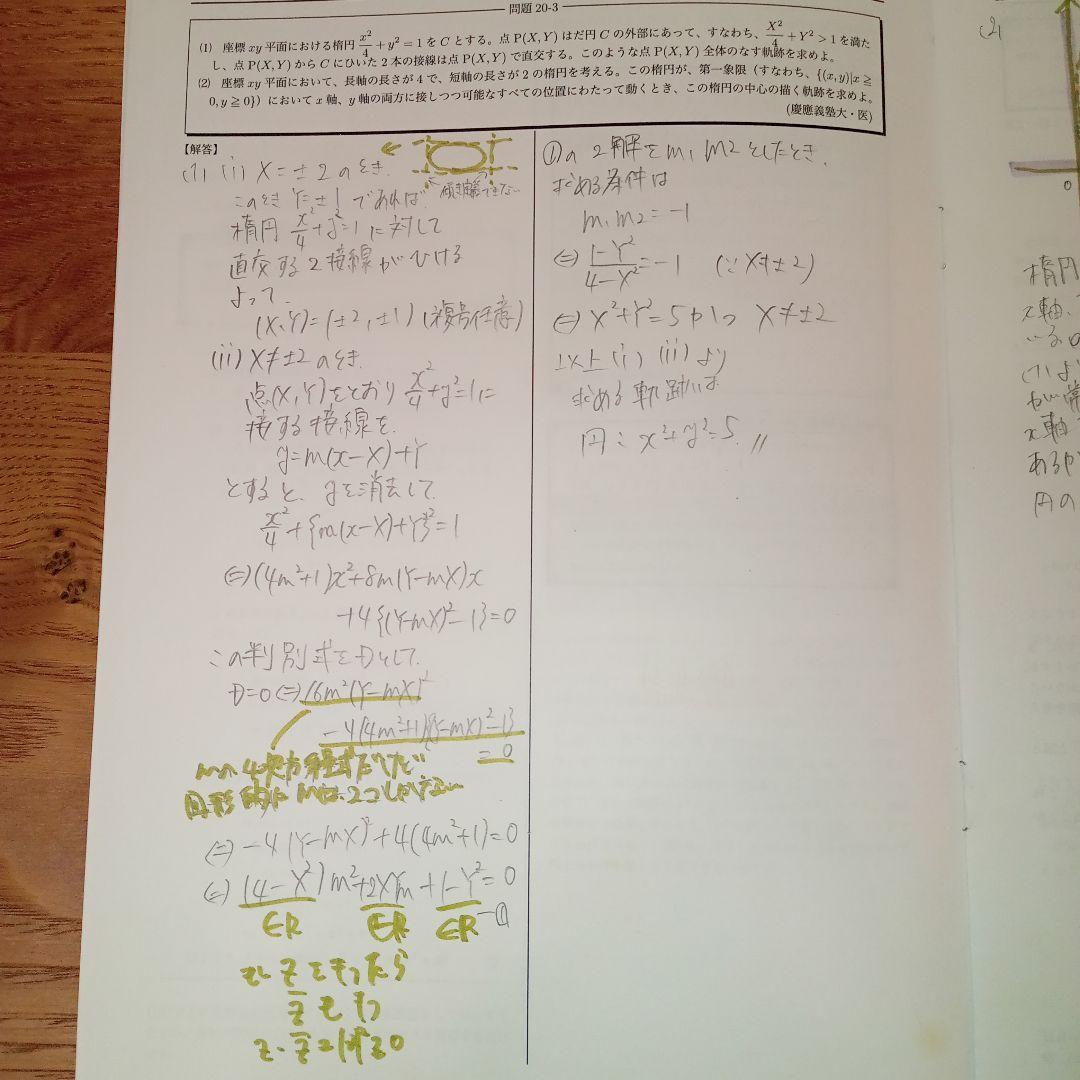 問題 20-3
(1) 座標 xy 平面における楕円 x²/4 + y² = 1 を C とする。点 P(X, Y) はだ円 C の外部にあって、すなわち、X²/4 + Y² > 1 を満た
し、点 P(X, Y) から C にひいた 2 本の接線は点 P(X, Y) で直交する。このような点 P(X, Y) 全体のなす軌跡を求めよ。
(2) 座標 xy 平面において、長軸の長さが 4 で、短軸の長さが 2 の楕円を考える。この楕円が、第一象限（すなわち、{(x, y)|x ≧
0, y ≧ 0}）において x 軸、y 軸の両方に接しつつ可能なすべての位置にわたって動くとき、この楕円の中心の描く軌跡を求めよ。
(慶應義塾大・医)
【解答】
(1) (i) X = ±2 のとき.
このとき Y=±1 であれば
傾き定義できない
楕円 x²/4 + y² = 1 に対して
直交する2接線がひける
よって.
(X, Y) = (±2, ±1) (複号任意)
(ii) X ≠ ±2 のとき.
点(X, Y)をとおり x²/4 + y² = 1 に
接する接線を.
y = m(x−X)+Y
とすると、yを消去して.
x²/4 + {m(x−X)+Y}² = 1
⇔ (4m²+1)x² + 8m(Y−mX)x
+4{(Y−mX)²−1} = 0
この判別式をDとして.
D=0 ⇔ 16m²(Y−mX)²
−4(4m²+1){(Y−mX)²−1}
= 0
mの4次方程式だけど
図形的に mは2つしかでない
⇔ −4(Y−mX)² + 4(4m²+1) = 0
⇔ (4−X²)m² + 2XYm + 1−Y² = 0
∈R ∈R ∈R −①
z をもったら
z̄ もも つ
z・z̄ ≧ 0
①の2解を m₁ m₂ としたとき.
求める条件は
m₁m₂ = −1
⇔ (1−Y²)/(4−X²) = −1 (∵ X≠±2)
⇔ X²+Y²=5 かつ X≠±2
以上 (i) (ii) より
求める軌跡は
円: x²+y²=5. //
(2)
0
楕円
x軸、
いるの
(1)よ
が常
x軸
あるか
円の